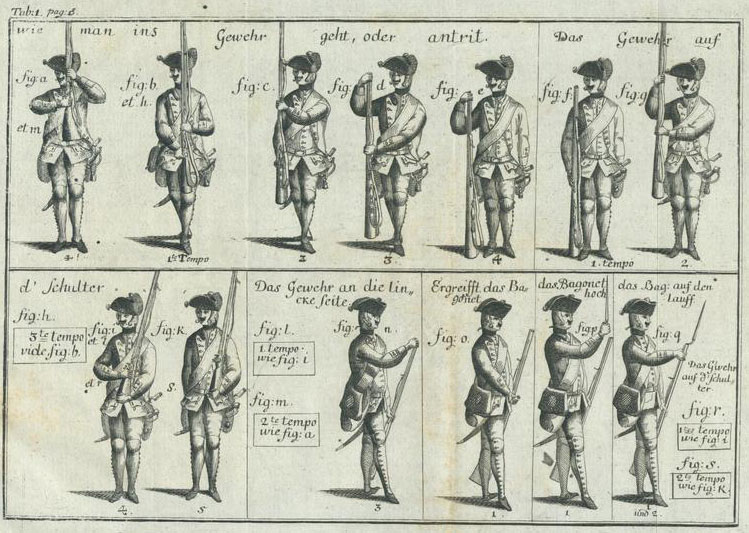 Tab: 1. pag: 8.
wie man ins Gewehr geht, oder antrit.
Das Gewehr auf
fig: a
et m
fig: b.
et h.
fig: c.
fig: d
fig: e
fig: f.
fig: g
4
1te Tempo
2
3
4
1. tempo
2.
d' Schulter
fig: h.
3te tempo
vide fig: b.
fig: i
et l
et r
fig: K.
S.
4
5
Das Gewehr an die lin„
cke seite
fig: l.
1. tempo.
wie fig: i
fig: m.
2te tempo
wie fig: a
fig: n.
3
Ergreifft das Ba„
gonet
fig: o.
1.
das Bagonet
hoch
fig: p
1
das Bag: auf den
Lauff
fig: q
Das Gwehr
auf d' Schul„
ter
fig: r.
1tes tempo
wie fig: i
fig: S.
2tes tempo
wie fig: K.
1
und 2.